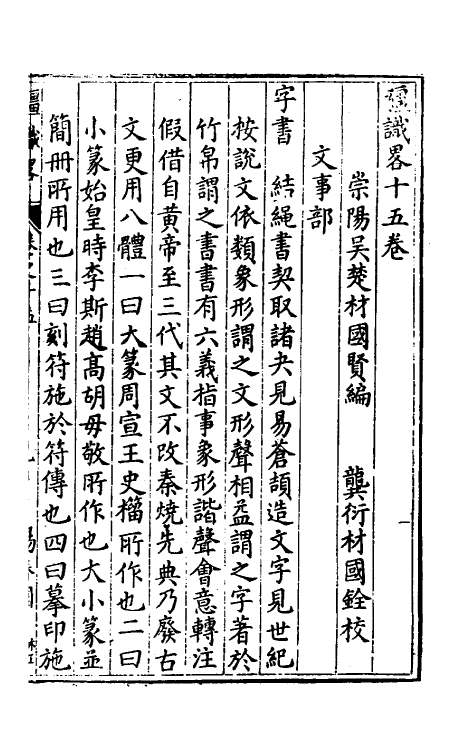 彊識畧十五卷
崇陽吳楚材國賢編　龔衍材國銓校
文事部
字書　結繩書契取諸夬見易蒼頡造文字見世紀
按說文依類象形謂之文形聲相益謂之字著於
竹帛謂之書書有六義指事象形諧聲會意轉注
假借自黃帝至三代其文不改秦燒先典乃廢古
文更用八體一曰大篆周宣王史籀所作也二曰
小篆始皇時李斯趙高胡毋敬所作也大小篆並
簡冊所用也三曰刻符施於符傳也四曰摹印施